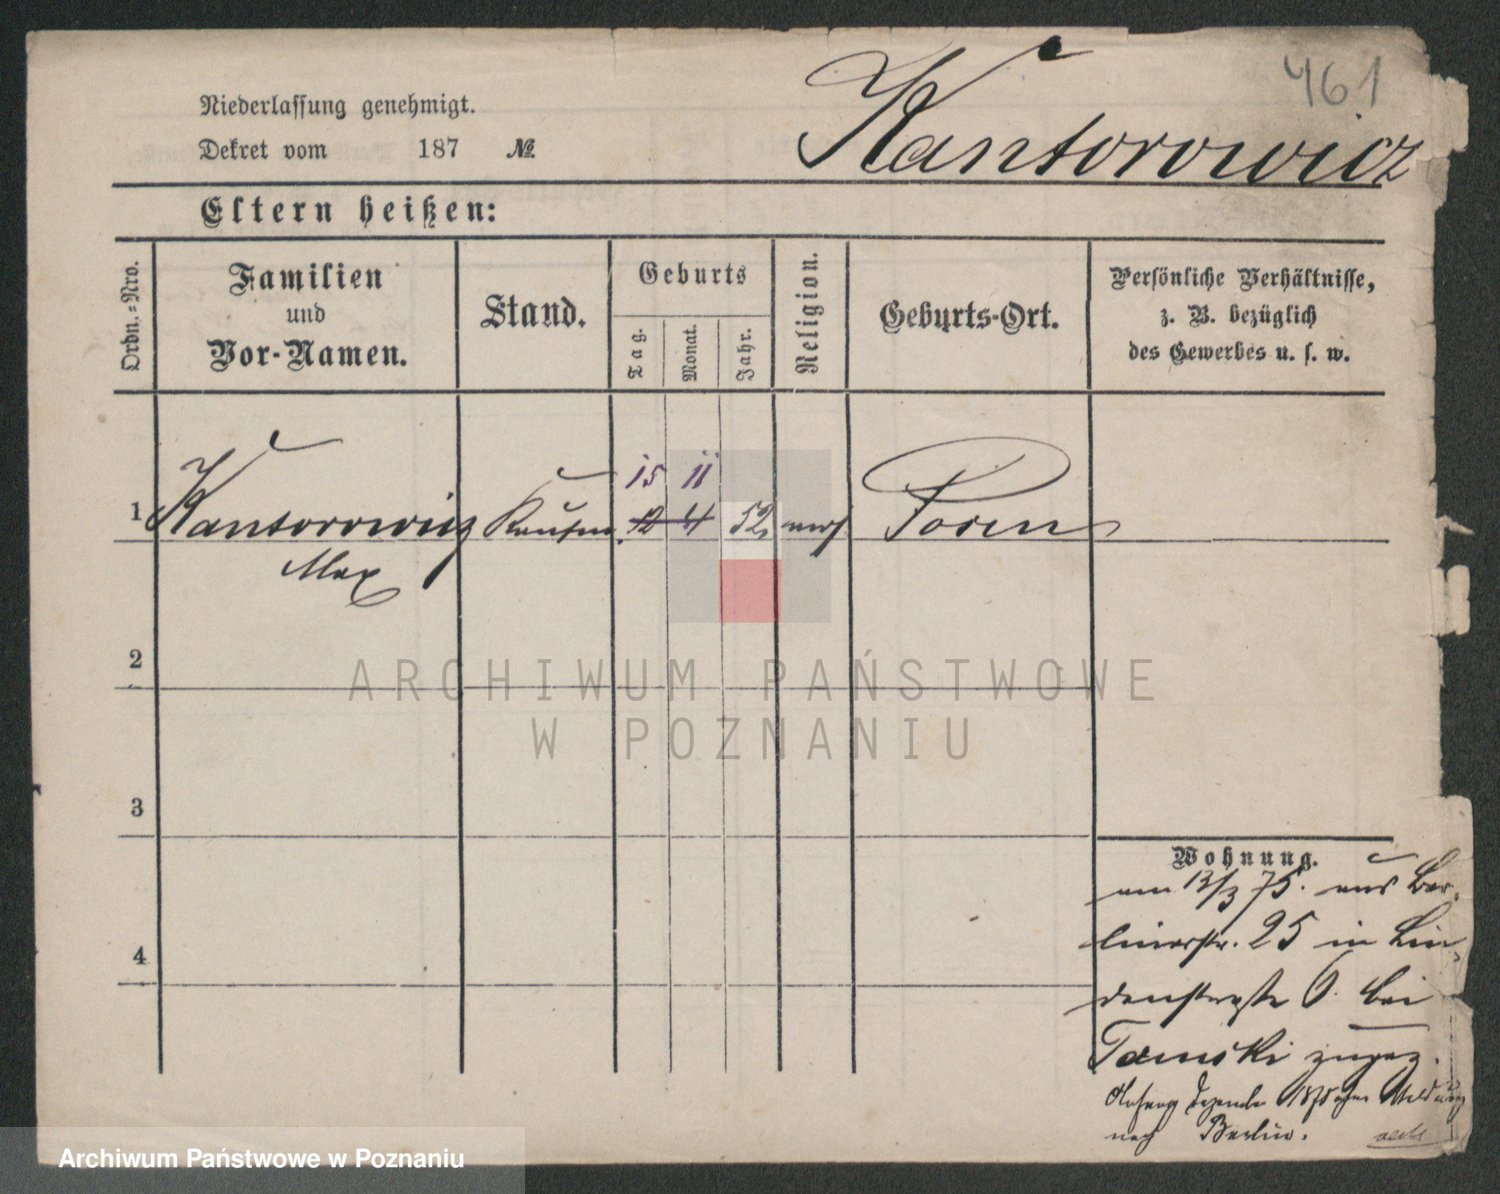 461
Kantorowicz
Niederlassung genehmigt.
Dekret vom 187 №
Eltern heißen:
Ordn.-Nro.
Familien
und
Vor-Namen.
Stand.
Geburts
Tag.
Monat.
Jahr.
Religion.
Geburts-Ort.
Persönliche Verhältnisse,
z. B. bezüglich
des Gewerbes u. s. w.
15 11
1 Kantorowicz Kaufm. 12 4 52 mos Posen
Max
2
3
4
Wohnung.
am 13/3 75. aus Ber-
linerstr. 25 in Lin-
denstraße 6. bei
Tomski zugez.
Anfang Dezember 1875 ohne Meldung
nach Berlin.
ARCHIWUM PAŃSTWOWE
W POZNANIU
Archiwum Państwowe w Poznaniu